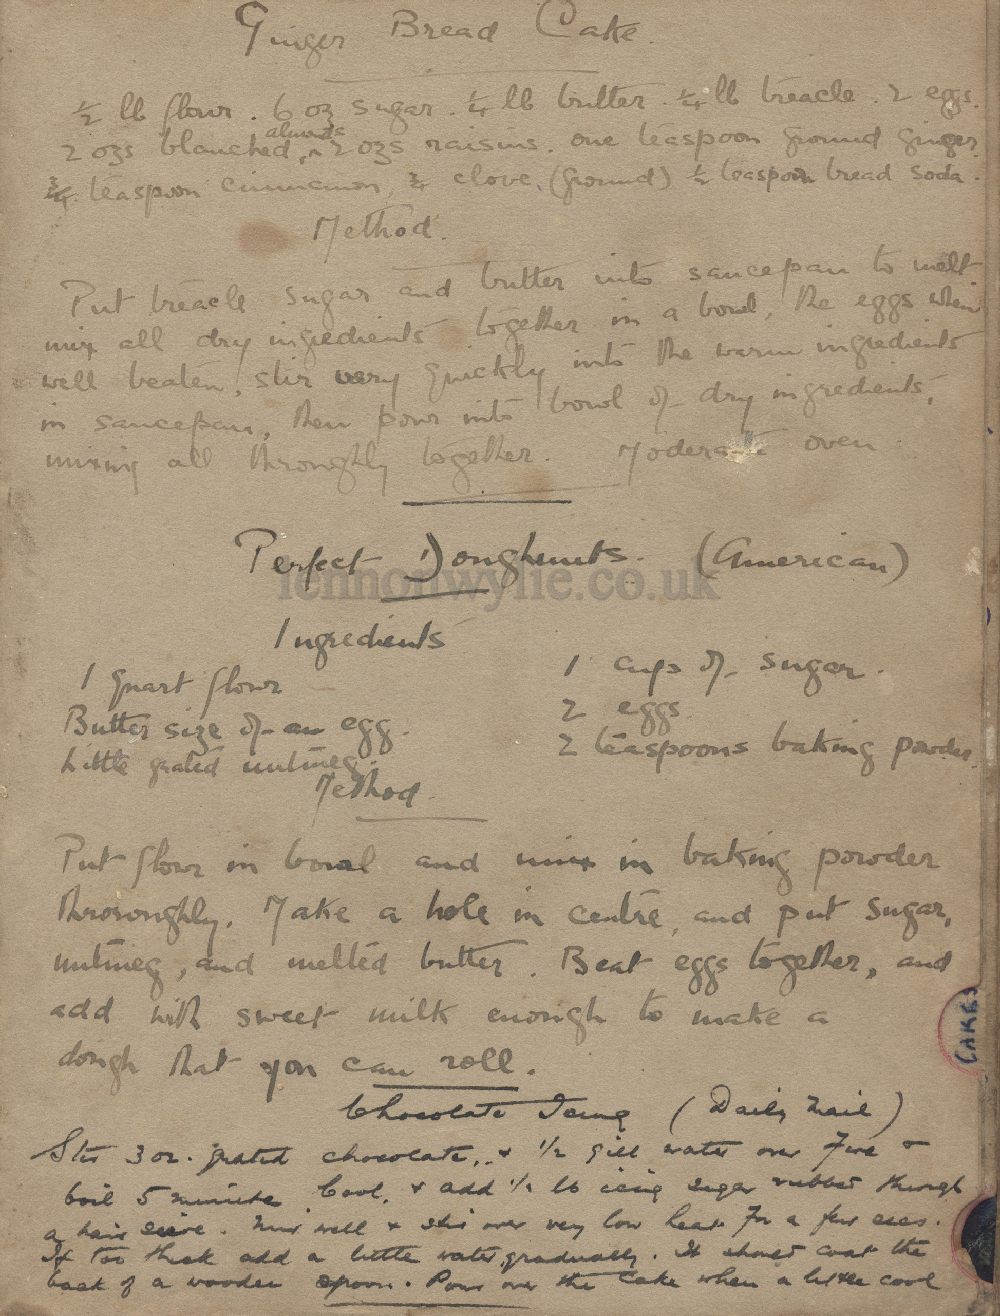 Ginger Bread Cake.
½ lb flour. 6 oz sugar. ¼ lb butter. ¼ lb treacle. 2 eggs.
2 ozs blanched almonds, 2 ozs raisins. one teaspoon ground ginger
¾ teaspoon cinnamon, ¾ clove, (ground) ½ teaspoon bread soda.
Method.
Put treacle sugar and butter into saucepan to melt
mix all dry ingredients together in a bowl, the eggs when
well beaten, stir very quickly into the warm ingredients
in saucepan, then pour into bowl of dry ingredients,
mixing all throughly together. Moderate oven.
Perfect Doughnuts. (American)
lennonwylie.co.uk
Ingredients
1 quart flour
1 cups of sugar.
Butter size of an egg.
2 eggs
Little grated nutmeg.
2 teaspoons baking powder.
Method
Put flour in bowl and mix in baking powder
throroughly. Make a hole in centre, and put sugar,
nutmeg, and melted butter. Beat eggs together, and
add with sweet milk enough to make a
dough that you can roll.
CAKES
Chocolate Icing (Daily Mail)
Stir 3 oz. grated chocolate, & ½ gill water over fire &
boil 5 minutes Cool, & add ½ lb icing sugar rubbed through
a hair sieve. Mix well & stir over very low heat for a few secs.
If too thick add a little water, gradually. It should coat the
back of a wooden spoon. Pour over the cake when a little cool